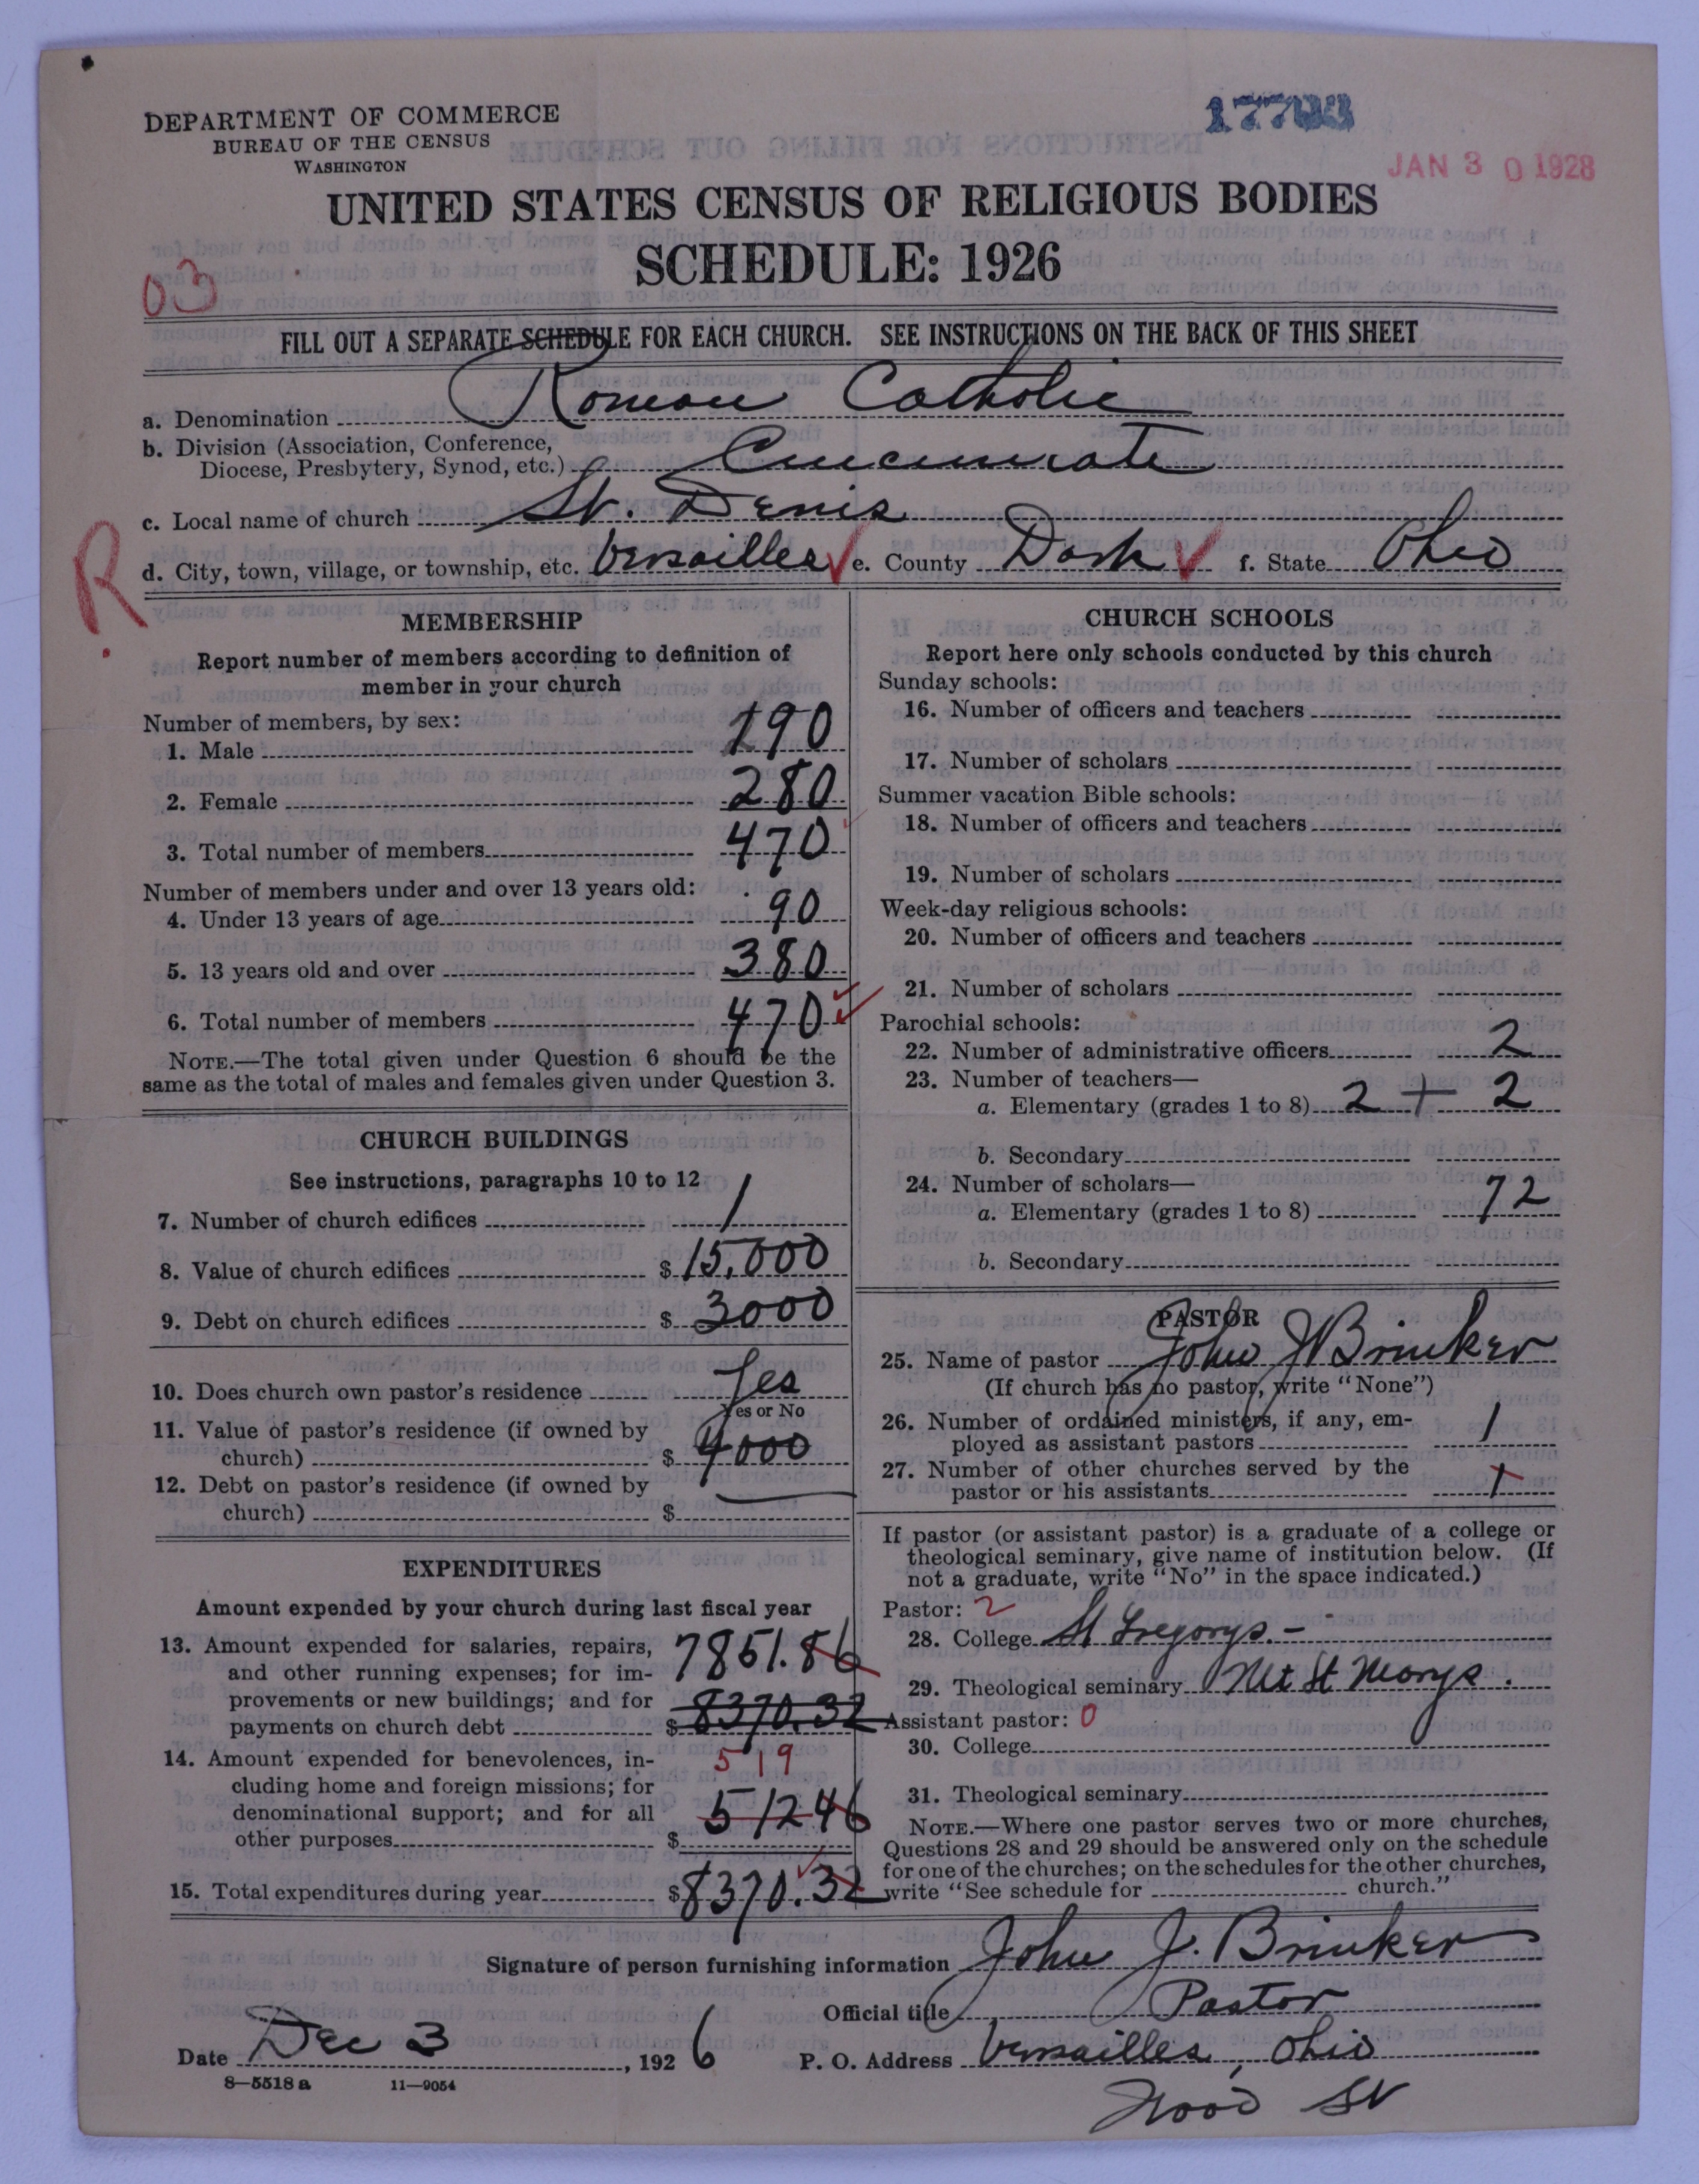 DEPARTMENT OF COMMERCE
BUREAU OF THE CENSUS
WASHINGTON
JAN 30 1928
UNITED STATES CENSUS OF RELIGIOUS BODIES
SCHEDULE: 1926
03
FILL OUT A SEPARATE SCHEDULE FOR EACH CHURCH. SEE INSTRUCTIONS ON THE BACK OF THIS SHEET
a. Denomination Roman Catholic
b. Division (Association, Conference,
Diocese, Presbytery, Synod, etc.) Cincinnati
c. Local name of church St. Denis
R.
d. City, town, village, or township, etc. Versailles e. County Dark f. State Ohio
MEMBERSHIP
Report number of members according to definition of
member in your church
Number of members, by sex:
1. Male 190
2. Female 280
3. Total number of members 470
Number of members under and over 13 years old:
4. Under 13 years of age 90
5. 13 years old and over 380
6. Total number of members 470
NOTE.—The total given under Question 6 should be the
same as the total of males and females given under Question 3.
CHURCH BUILDINGS
See instructions, paragraphs 10 to 12
7. Number of church edifices 1
8. Value of church edifices $ 15,000
9. Debt on church edifices $ 3000
10. Does church own pastor's residence Yes
Yes or No
11. Value of pastor's residence (if owned by
church) $ 4000
12. Debt on pastor's residence (if owned by
church) $ —
EXPENDITURES
Amount expended by your church during last fiscal year
13. Amount expended for salaries, repairs, 7851.86
and other running expenses; for im-
provements or new buildings; and for
payments on church debt $ 8370.32
14. Amount expended for benevolences, in- 519
cluding home and foreign missions; for
denominational support; and for all 51246
other purposes $
15. Total expenditures during year $ 8370.32
CHURCH SCHOOLS
Report here only schools conducted by this church
Sunday schools:
16. Number of officers and teachers
17. Number of scholars
Summer vacation Bible schools:
18. Number of officers and teachers
19. Number of scholars
Week-day religious schools:
20. Number of officers and teachers
21. Number of scholars
Parochial schools:
22. Number of administrative officers 2
23. Number of teachers—
a. Elementary (grades 1 to 8) 2 + 2
b. Secondary
24. Number of scholars—
a. Elementary (grades 1 to 8) 72
b. Secondary
PASTOR
25. Name of pastor John J Brinker
(If church has no pastor, write "None")
26. Number of ordained ministers, if any, em-
ployed as assistant pastors 1
27. Number of other churches served by the
pastor or his assistants 1
If pastor (or assistant pastor) is a graduate of a college or
theological seminary, give name of institution below. (If
not a graduate, write "No" in the space indicated.)
Pastor: 2
28. College St Gregorys. —
29. Theological seminary Mt St Marys.
Assistant pastor: 0
30. College
31. Theological seminary
NOTE.—Where one pastor serves two or more churches,
Questions 28 and 29 should be answered only on the schedule
for one of the churches; on the schedules for the other churches,
write "See schedule for church."
Signature of person furnishing information John J. Brinker
Official title Pastor
Date Dec 3, 1926 P. O. Address Versailles, Ohio
8—5518 a 11—9054
Wood St